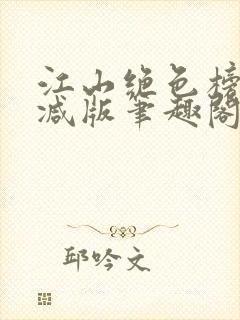 江山绝色榜
减版笔趣阁
邱吟文